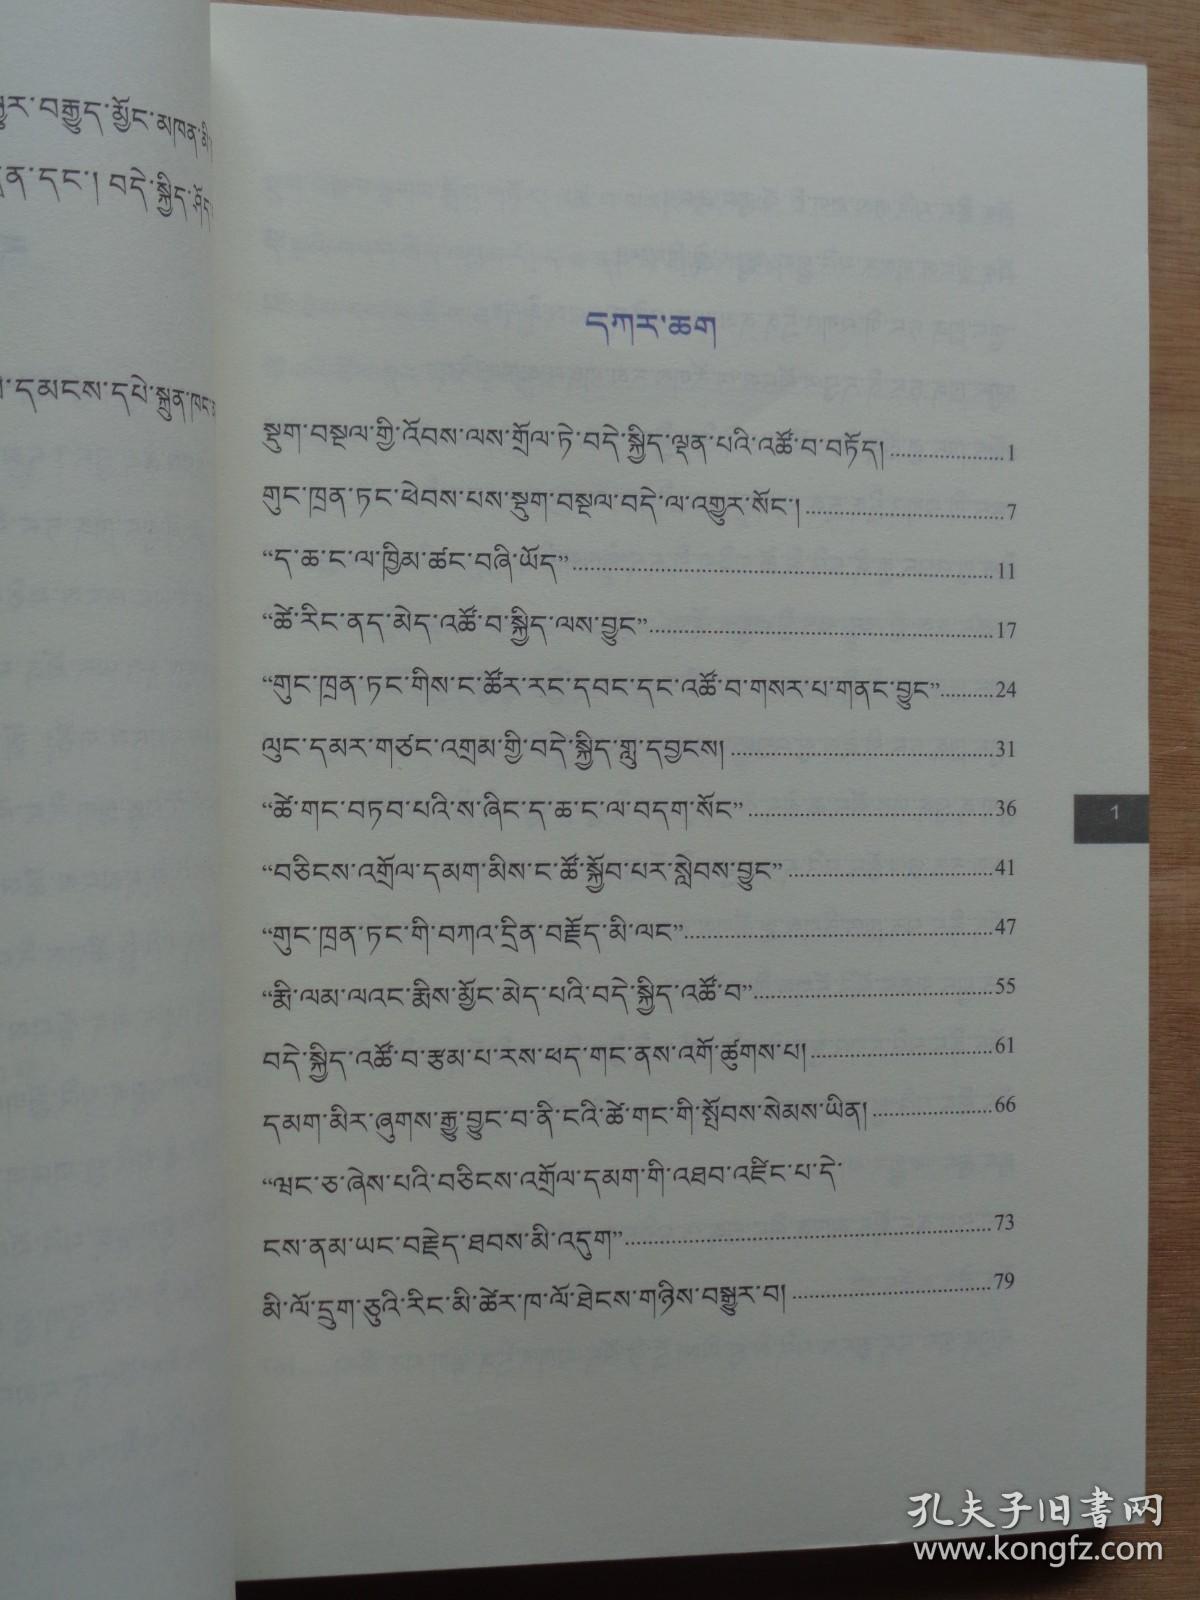 བརྒྱུད་མྱོང་མཁན་མི
དང་། བདེ་སྐྱིད་
དམངས་དཔེ་སྐྲུན་ཁང་
དཀར་ཆག
སྡུག་བསྔལ་གྱི་འོབས་ལས་གྲོལ་ཏེ་བདེ་སྐྱིད་ལྡན་པའི་འཚོ་བ་བཏོད། ....................1
གུང་ཁྲན་ཏང་ཕེབས་པས་སྡུག་བསྔལ་བདེ་ལ་འགྱུར་སོང་། ..................................7
“ད་ཆ་ང་ལ་ཁྱིམ་ཚང་བཞི་ཡོད” ..........................................................................11
“ཚེ་རིང་ནད་མེད་འཚོ་བ་སྐྱིད་ལས་བྱུང”.............................................................17
“གུང་ཁྲན་ཏང་གིས་ང་ཚོར་རང་དབང་དང་འཚོ་བ་གསར་པ་གནང་བྱུང”..........24
ལུང་དམར་གཙང་འགྲམ་གྱི་བདེ་སྐྱིད་གླུ་དབྱངས། ..............................................31
“ཚེ་གང་བཏབ་པའི་ས་ཞིང་ད་ཆ་ང་ལ་བདག་སོང” ...........................................36
“བཅིངས་འགྲོལ་དམག་མིས་ང་ཚོ་སྐྱོབ་པར་སླེབས་བྱུང” ....................................41
“གུང་ཁྲན་ཏང་གི་བཀའ་དྲིན་བརྗོད་མི་ལང”......................................................47
“རྨི་ལམ་ལའང་རྨིས་མྱོང་མེད་པའི་བདེ་སྐྱིད་འཚོ་བ”..........................................55
བདེ་སྐྱིད་འཚོ་བ་རྩམ་པ་རས་ཕད་གང་ནས་འགོ་ཚུགས་པ། ................................61
དམག་མིར་ཞུགས་རྒྱུ་བྱུང་བ་ནི་ངའི་ཚེ་གང་གི་སྤོབས་སེམས་ཡིན། .....................66
“ཝང་ཅ་ཞེས་པའི་བཅིངས་འགྲོལ་དམག་གི་འཐབ་འཛིང་པ་དེ་
ངས་ནམ་ཡང་བརྗེད་ཐབས་མི་འདུག”.................................................................73
མི་ལོ་དྲུག་ཅུའི་རིང་མི་ཚེར་ཁ་ལོ་ཐེངས་གཉིས་བསྒྱུར་བ། ...................................79
1
孔夫子旧书网
www.kongfz.com